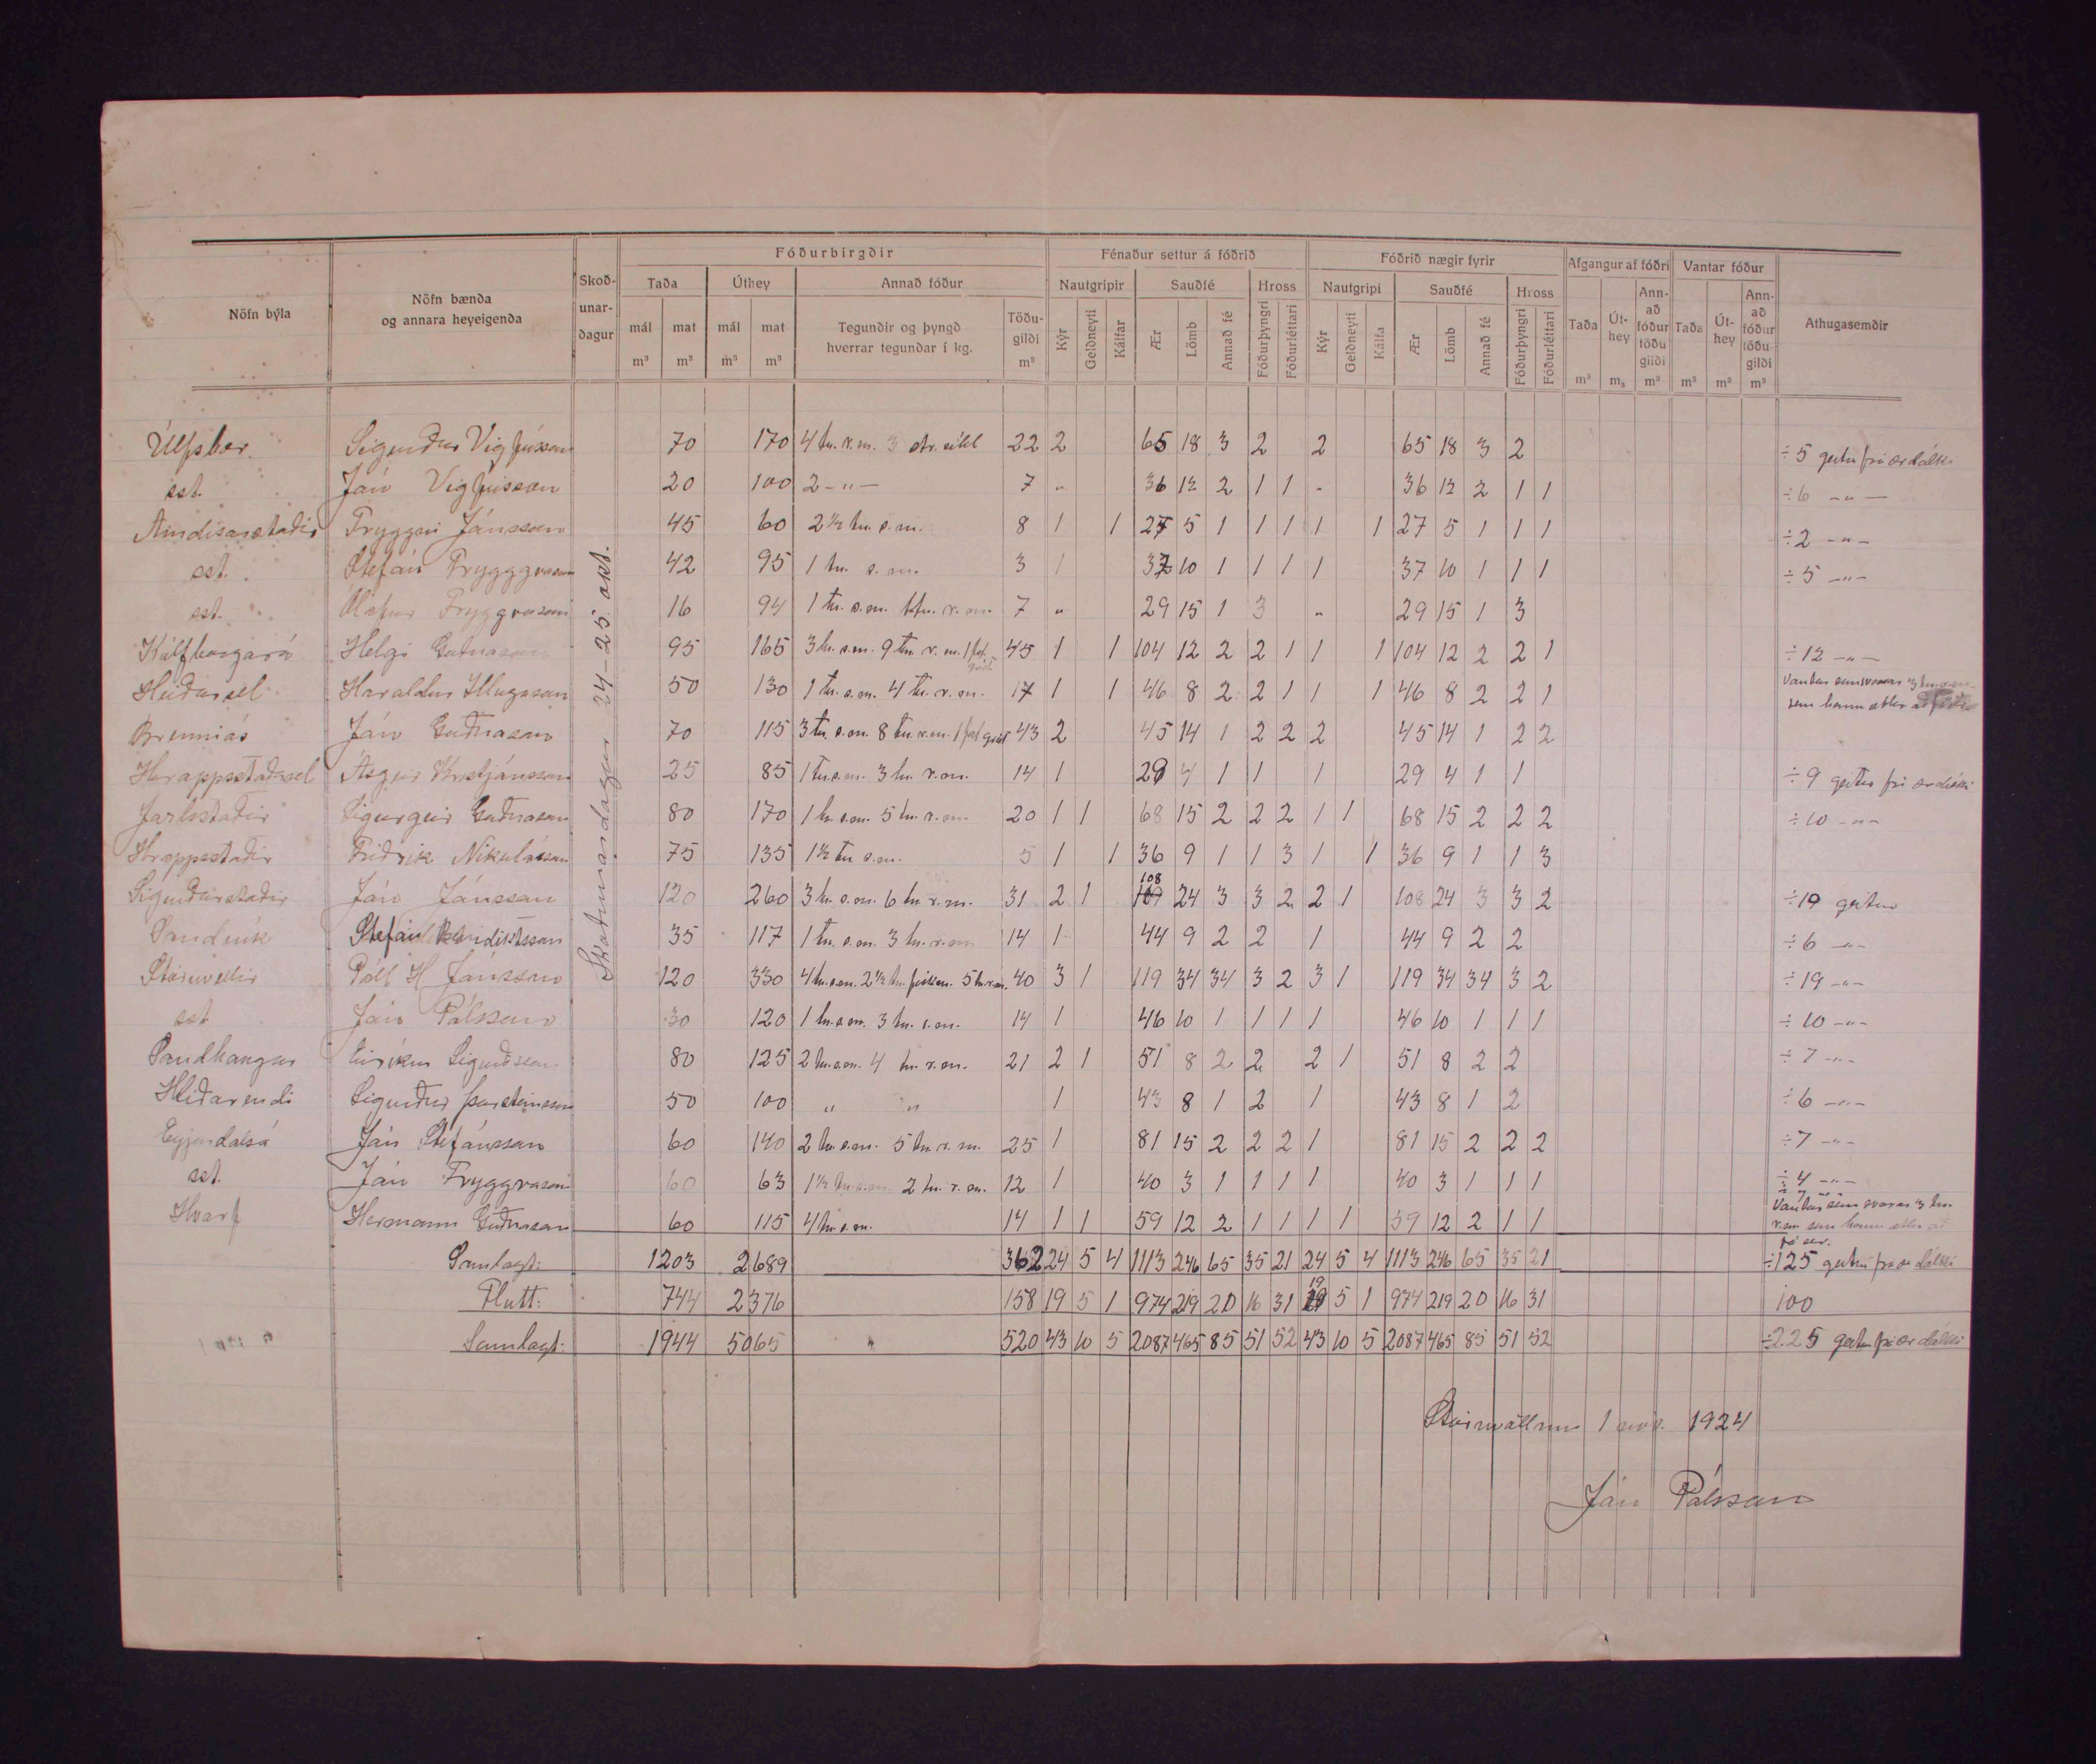 Fóðurbirgðir Fénaður settur á fóðrið Fóðrið nægir fyrir Afgangur af fóðri Vantar fóður
Nöfn býla Nöfn bænda og annara heyeigenda Skoð-unar-dagur Taða Úthey Annað fóður Nautgripir Sauðfé Hross Nautgripi Sauðfé Hross Taða Út-hey Ann-að fóður töðu gildi Taða Út-hey Ann-að fóður töðu-gildi Athugasemdir
mál m³ mat m³ mál m³ mat m³ Tegundir og þyngd hverrar tegundar í kg. Töðu-gildi m³ Kýr Geldneyti Kálfar Ær Lömb Annað fé Fóðurþyngri Fóðurléttari Kýr Geldneyti Kálfa Ær Lömb Annað fé Fóðurþyngri Fóðurléttari m³ m₃ m³ m³ m³ m³
Skoðunardagar 24-25. okt.
Úlfsbær Sigurður Vigfússon 70 170 4 tn. r.m. 3 str. síld 22 2 65 18 3 2 2 65 18 3 2 ÷ 5 geitur frí ærdálki
sst. Jón Vigfússon 20 100 2 -"- 7 " 36 12 2 1 1 - 36 12 2 1 1 ÷ 6 -"-
Arndísarstaðir Tryggvi Jónsson 45 60 2½ tn. s.m. 8 1 1 27 5 1 1 1 1 1 27 5 1 1 1 ÷ 2 -"-
sst. Stefán Tryggvason 42 95 1 tn. s.m. 3 1 37 10 1 1 1 1 37 10 1 1 1 ÷ 5 -"-
sst. Ólafur Tryggvason 16 94 1 tn. s.m. 1 tn. r.m. 7 " 29 15 1 3 " 29 15 1 3
Kálfborgará Helgi Guðnason 95 165 3 tn. s.m. 9 tn. r.m. 1 fat 45 1 1 104 12 2 2 1 1 1 104 12 2 2 1 ÷ 12 -"-
Heiðarsel Haraldur Illugason 50 130 1 tn. s.m. 4 tn. r.m. 17 1 1 46 8 2 2 1 1 1 46 8 2 2 1 Vantar sem svarar 3 tn.
sem hann ætlar
Brenniás Jón Guðnason 70 115 3 tn. s.m. 8 tn. r.m. 1 fat 43 2 45 14 1 2 2 2 45 14 1 2 2
Hrappstaðasel Ásgeir Kristjánsson 25 85 1 tn. s.m. 3 tn. r.m. 14 1 29 4 1 1 1 29 4 1 1 ÷ 9 geitur frí ærdálki
Jarlstaðir Sigurgeir Guðnason 80 170 1 tn. s.m. 5 tn. r.m. 20 1 1 68 15 2 2 2 1 1 68 15 2 2 2 ÷ 10 -"-
Hrappsstaðir Friðrik Nikulásson 75 135 1½ tn s.m. 5 1 1 36 9 1 1 3 1 1 36 9 1 1 3
Sigurðarstaðir Jón Jónsson 120 260 3 tn. s.m. 6 tn r.m. 31 2 1 108 24 3 3 2 2 1 108 24 3 3 2 ÷ 19 geitur
Sandvík Stefán 35 117 1 tn. s.m. 3 tn. r.m 14 1 44 9 2 2 1 44 9 2 2 ÷ 6 -"-
Stóruvellir Páll H. Jónsson 120 330 4 tn. s.m. 2½ tn. 5 tn r.m. 40 3 1 119 34 34 3 2 3 1 119 34 34 3 2 ÷ 19 -"-
sst Jón Pálsson 30 120 1 tn. s.m. 3 tn. r.m. 14 1 46 10 1 1 1 1 46 10 1 1 1 ÷ 10 -"-
Sandhaugar Eiríkur Sigurðsson 80 125 2 tn. s.m. 4 tn. r.m. 21 2 1 51 8 2 2 2 1 51 8 2 2 ÷ 7 -"-
Hlíðarendi Sigurður Þorsteinsson 50 100 " " 1 43 8 1 2 1 43 8 1 2 ÷ 6 -"-
Eyjardalsá Jón Stefánsson 60 140 2 tn. s.m. 5 tn. r.m. 25 1 81 15 2 2 2 1 81 15 2 2 2 ÷ 7 -"-
sst. Jón Tryggvason 60 63 1½ tn. s.m. 2 tn. r.m. 12 1 40 3 1 1 1 1 40 3 1 1 1 ÷ 4 -"-
Hvarf Hermann Guðnason 60 115 4 tn. s.m. 14 1 1 59 12 2 1 1 1 1 59 12 2 1 1 ÷ 7 -"-
Vantar sem svarar 3 tn.
r.m. sem hann ætlar að
fá sér.
Samlagt: 1203 2689 362 24 5 4 1113 246 65 35 21 24 5 4 1113 246 65 35 21 ÷125 geitur frí ærdálki
Flutt: 744 2376 158 19 5 1 974 219 20 16 31 19 5 1 974 219 20 16 31 100
Samlagt: 1944 5065 " 520 43 10 5 2087 465 85 51 52 43 10 5 2087 465 85 51 52 ÷225 geitur frí ærdálki
Stóruvöllum 1 nóv. 1924
Jón Pálsson